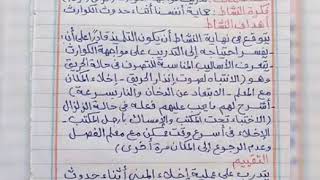 فكرة النشاط : حماية أنفسنا أثناء حدوث الكوارث
أهداف النشاط
يتوقع في نهاية النشاط أن يكون التلميذ قادرا على أن
يفسر احتياجه إلى التدريب على مواجهة الكوارث
يتعرف الأساليب المناسبة للتصرف في حالة الحريق
وهو (الانتباه لصوت إنذار الحريق - إخلاء المبنى
مع المعلم - الابتعاد عن الدخان والنار بسرعة)
أشرح لهم ما يجب عليهم فعله في حالة الزلزال
(الاختباء تحت المكتب والإمساك بأرجل المكتب -
الإخلاء في أسرع وقت ممكن مع معلم الفصل
وعدم الرجوع إلى المكان مرة أخرى)
التقييم
يتدرب على عملية إخلاء المبنى أثناء حدوث